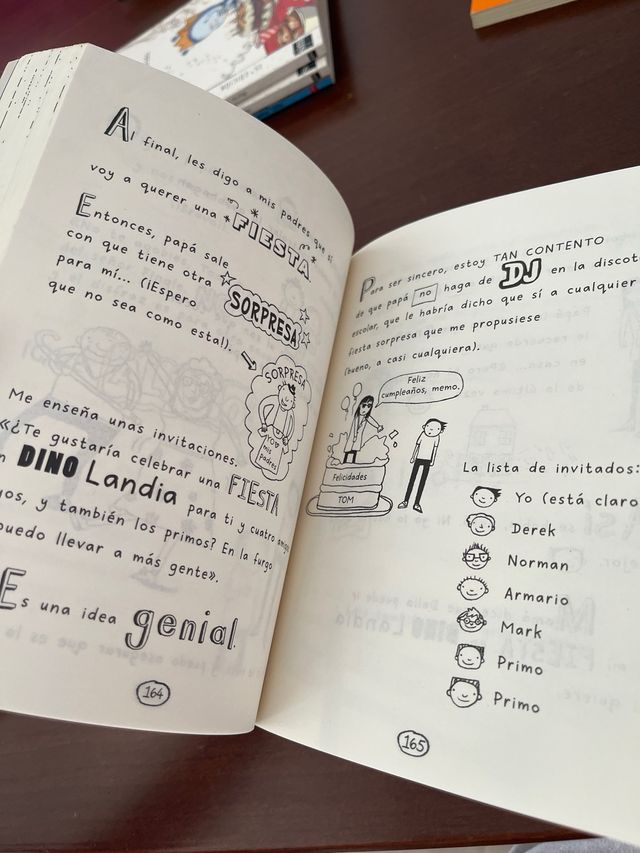 Al final, les digo a mis padres que sí
voy a querer una FIESTA
Entonces, papá sale
con que tiene otra SORPRESA
para mí... (¡Espero
que no sea como esta!).
SORPRESA
YO♥
mis
padres
Me enseña unas invitaciones.
«¿Te gustaría celebrar una FIESTA
DINO Landia para ti y cuatro
y también los primos? En la furgo
puedo llevar a más gente».
Es una idea genial.
164
Para ser sincero, estoy TAN CONTENTO
de que papá no haga de DJ en la
escolar, que le habría dicho que sí a cualquier
fiesta sorpresa que me propusiese
(bueno, a casi cualquiera).
Feliz
cumpleaños, memo.
Felicidades
TOM
La lista de invitados:
Yo (está claro
Derek
Norman
Armario
Mark
Primo
Primo
165